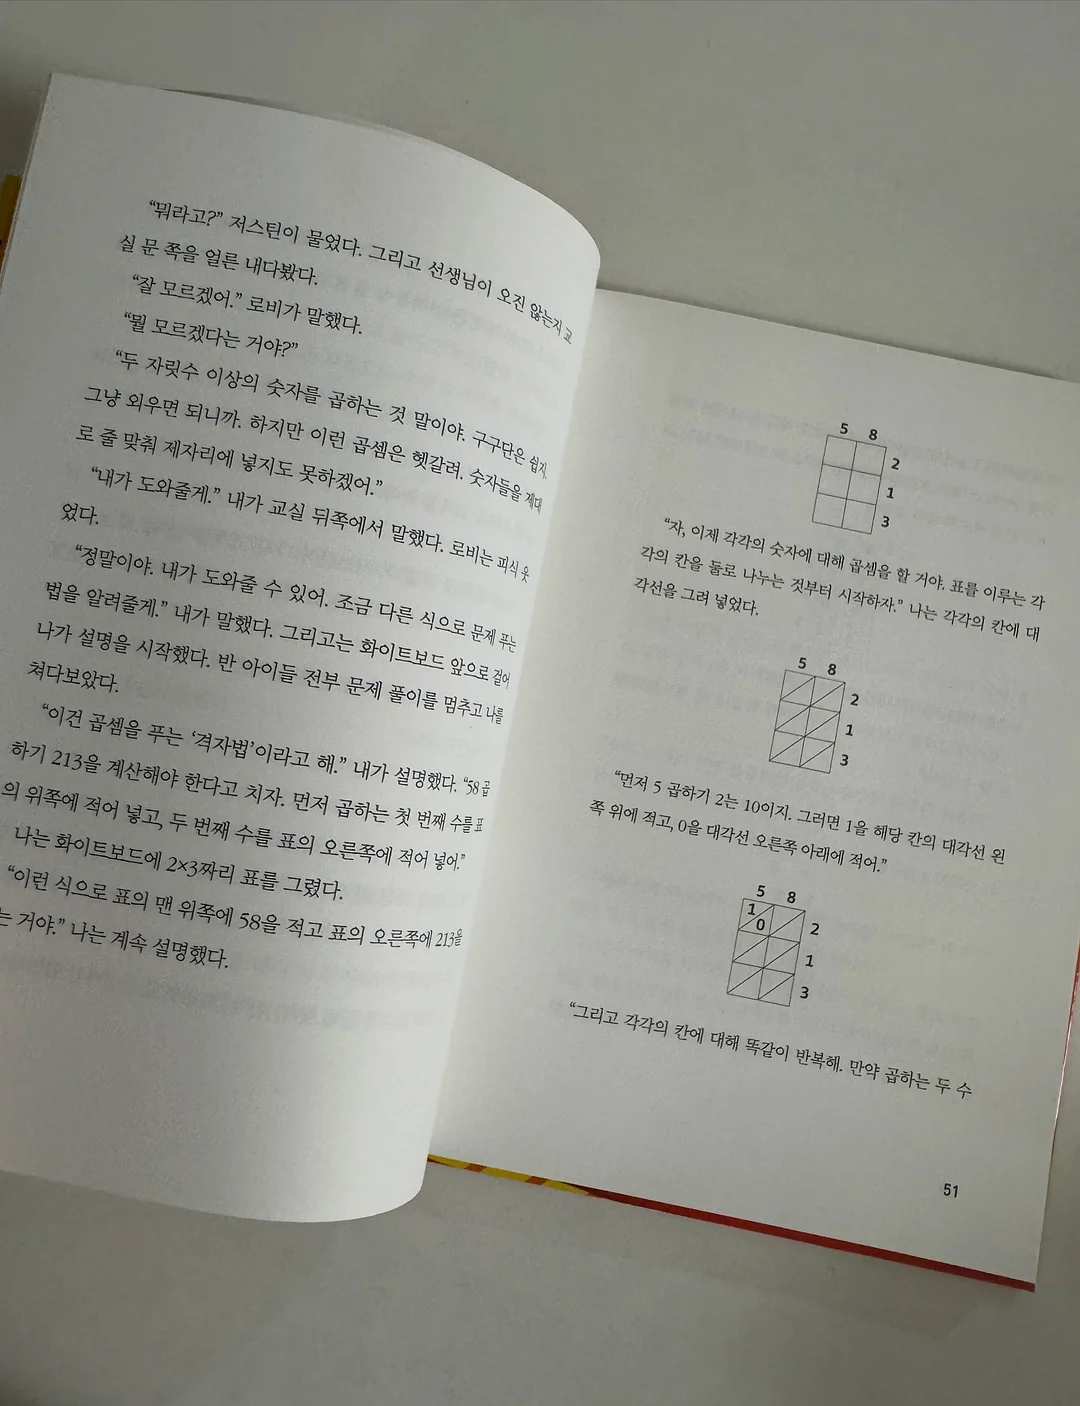 “뭐라고?” 저스틴이 물었다. 그리고 선생님이 오진 않는지 교
실 문 쪽을 얼른 내다봤다.
“잘 모르겠어.” 로비가 말했다.
“뭘 모르겠다는 거야?”
“두 자릿수 이상의 숫자를 곱하는 것 말이야. 구구단은 쉽지.
그냥 외우면 되니까. 하지만 이런 곱셈은 헷갈려. 숫자들을 제대
로 줄 맞춰 제자리에 넣지도 못하겠어.”
“내가 도와줄게.” 내가 교실 뒤쪽에서 말했다. 로비는 피식 웃
었다.
“정말이야. 내가 도와줄 수 있어. 조금 다른 식으로 문제 푸는
법을 알려줄게.” 내가 말했다. 그리고는 화이트보드 앞으로 걸어
나가 설명을 시작했다. 반 아이들 전부 문제 풀이를 멈추고 나를
쳐다보았다.
“이건 곱셈을 푸는 ‘격자법’이라고 해.” 내가 설명했다. “58 곱
하기 213을 계산해야 한다고 치자. 먼저 곱하는 첫 번째 수를 표
의 위쪽에 적어 넣고, 두 번째 수를 표의 오른쪽에 적어 넣어.”
나는 화이트보드에 2×3짜리 표를 그렸다.
“이런 식으로 표의 맨 위쪽에 58을 적고 표의 오른쪽에 213을
는 거야.” 나는 계속 설명했다.
5 8
2
1
3
“자, 이제 각각의 숫자에 대해 곱셈을 할 거야. 표를 이루는 각
각의 칸을 둘로 나누는 것부터 시작하자.” 나는 각각의 칸에 대
각선을 그려 넣었다.
5 8
2
1
3
“먼저 5 곱하기 2는 10이지. 그러면 1을 해당 칸의 대각선 왼
쪽 위에 적고, 0을 대각선 오른쪽 아래에 적어.”
5 8
1
0 2
1
3
“그리고 각각의 칸에 대해 똑같이 반복해. 만약 곱하는 두 수
51